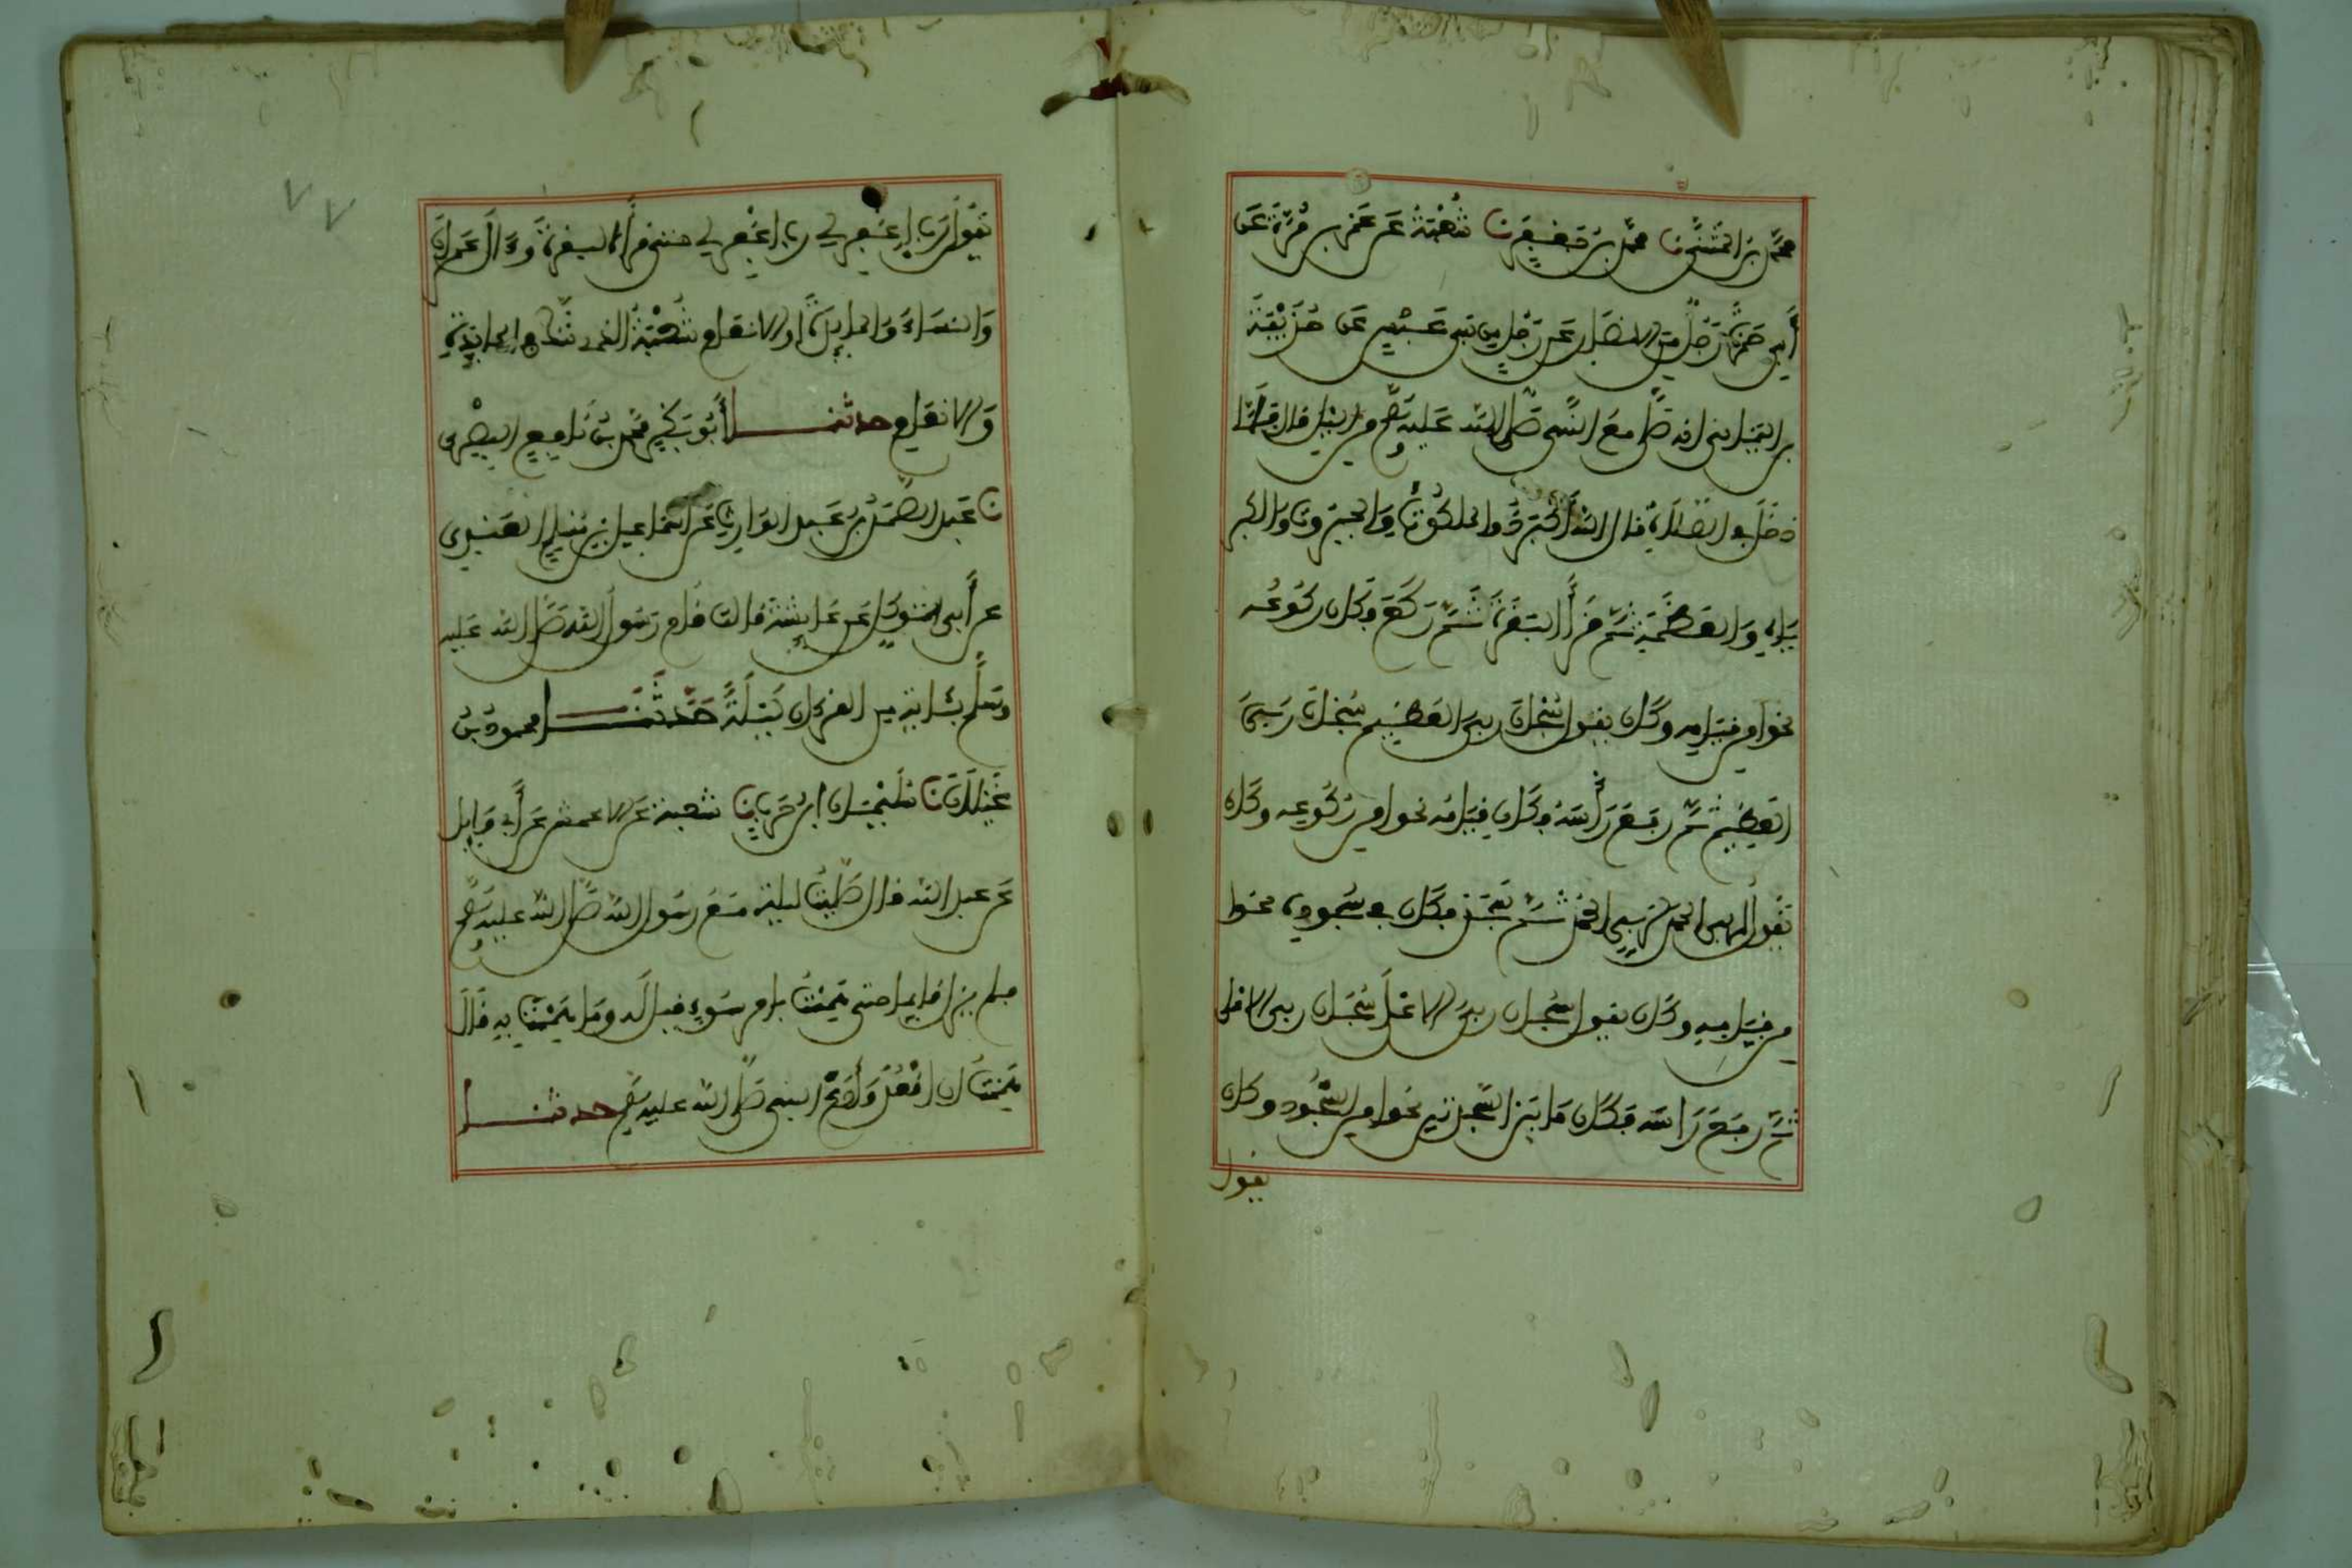 محمد بن المثنى نا محمد بن جعفر نا شعبة عن عمرو بن مرة عن
أبي حمزة رجل من الانصار عن رجل من بني عبس عن حذيفة
بن اليمان انه صلى مع النبي صلى الله عليه وسلم من الليل قال فلما
دخل في الصلاة قال الله أكبر ذو الملكوت والجبروت والكبر
ياء والعظمة ثم قرأ البقرة ثم ركع فكان ركوعه
نحوا من قيامه وكان يقول سبحان ربي العظيم سبحان ربي
العظيم ثم رفع رأسه فكان قيامه نحوا من ركوعه وكان
يقول لربي الحمد لربي الحمد ثم سجد فكان سجوده نحوا
من قيامه وكان يقول سبحان ربي الاعلى سبحان ربي الاعلى
ثم رفع رأسه فكان ما بين السجدتين نحوا من السجود وكان
يقول
يقول رب اغفر لي رب اغفر لي حتى قرأ البقرة وءال عمران
والنساء والمايدة او الانعام شعبة الذي شك في المايدة
والانعام حدثنا أبو بكر محمد بن نافع البصري
نا عبد الصمد بن عبد الوارث عن اسماعيل بن مسلم العبدي
عن أبي المتوكل عن عايشة قالت قام رسول الله صلى الله عليه
وسلم بئاية من القرءان ليلة حدثنا محمود بن
غيلان نا سليمان ابن حرب نا شعبة عن الاعمش عن أبي وايل
عن عبد الله قال صليت ليلة مع رسول الله صلى الله عليه وسلم
فلم يزل قايما حتى هممت بامر سوء قيل له وما هممت به قال
هممت ان اقعد وأدع النبي صلى الله عليه وسلم حدثنا
٧٧